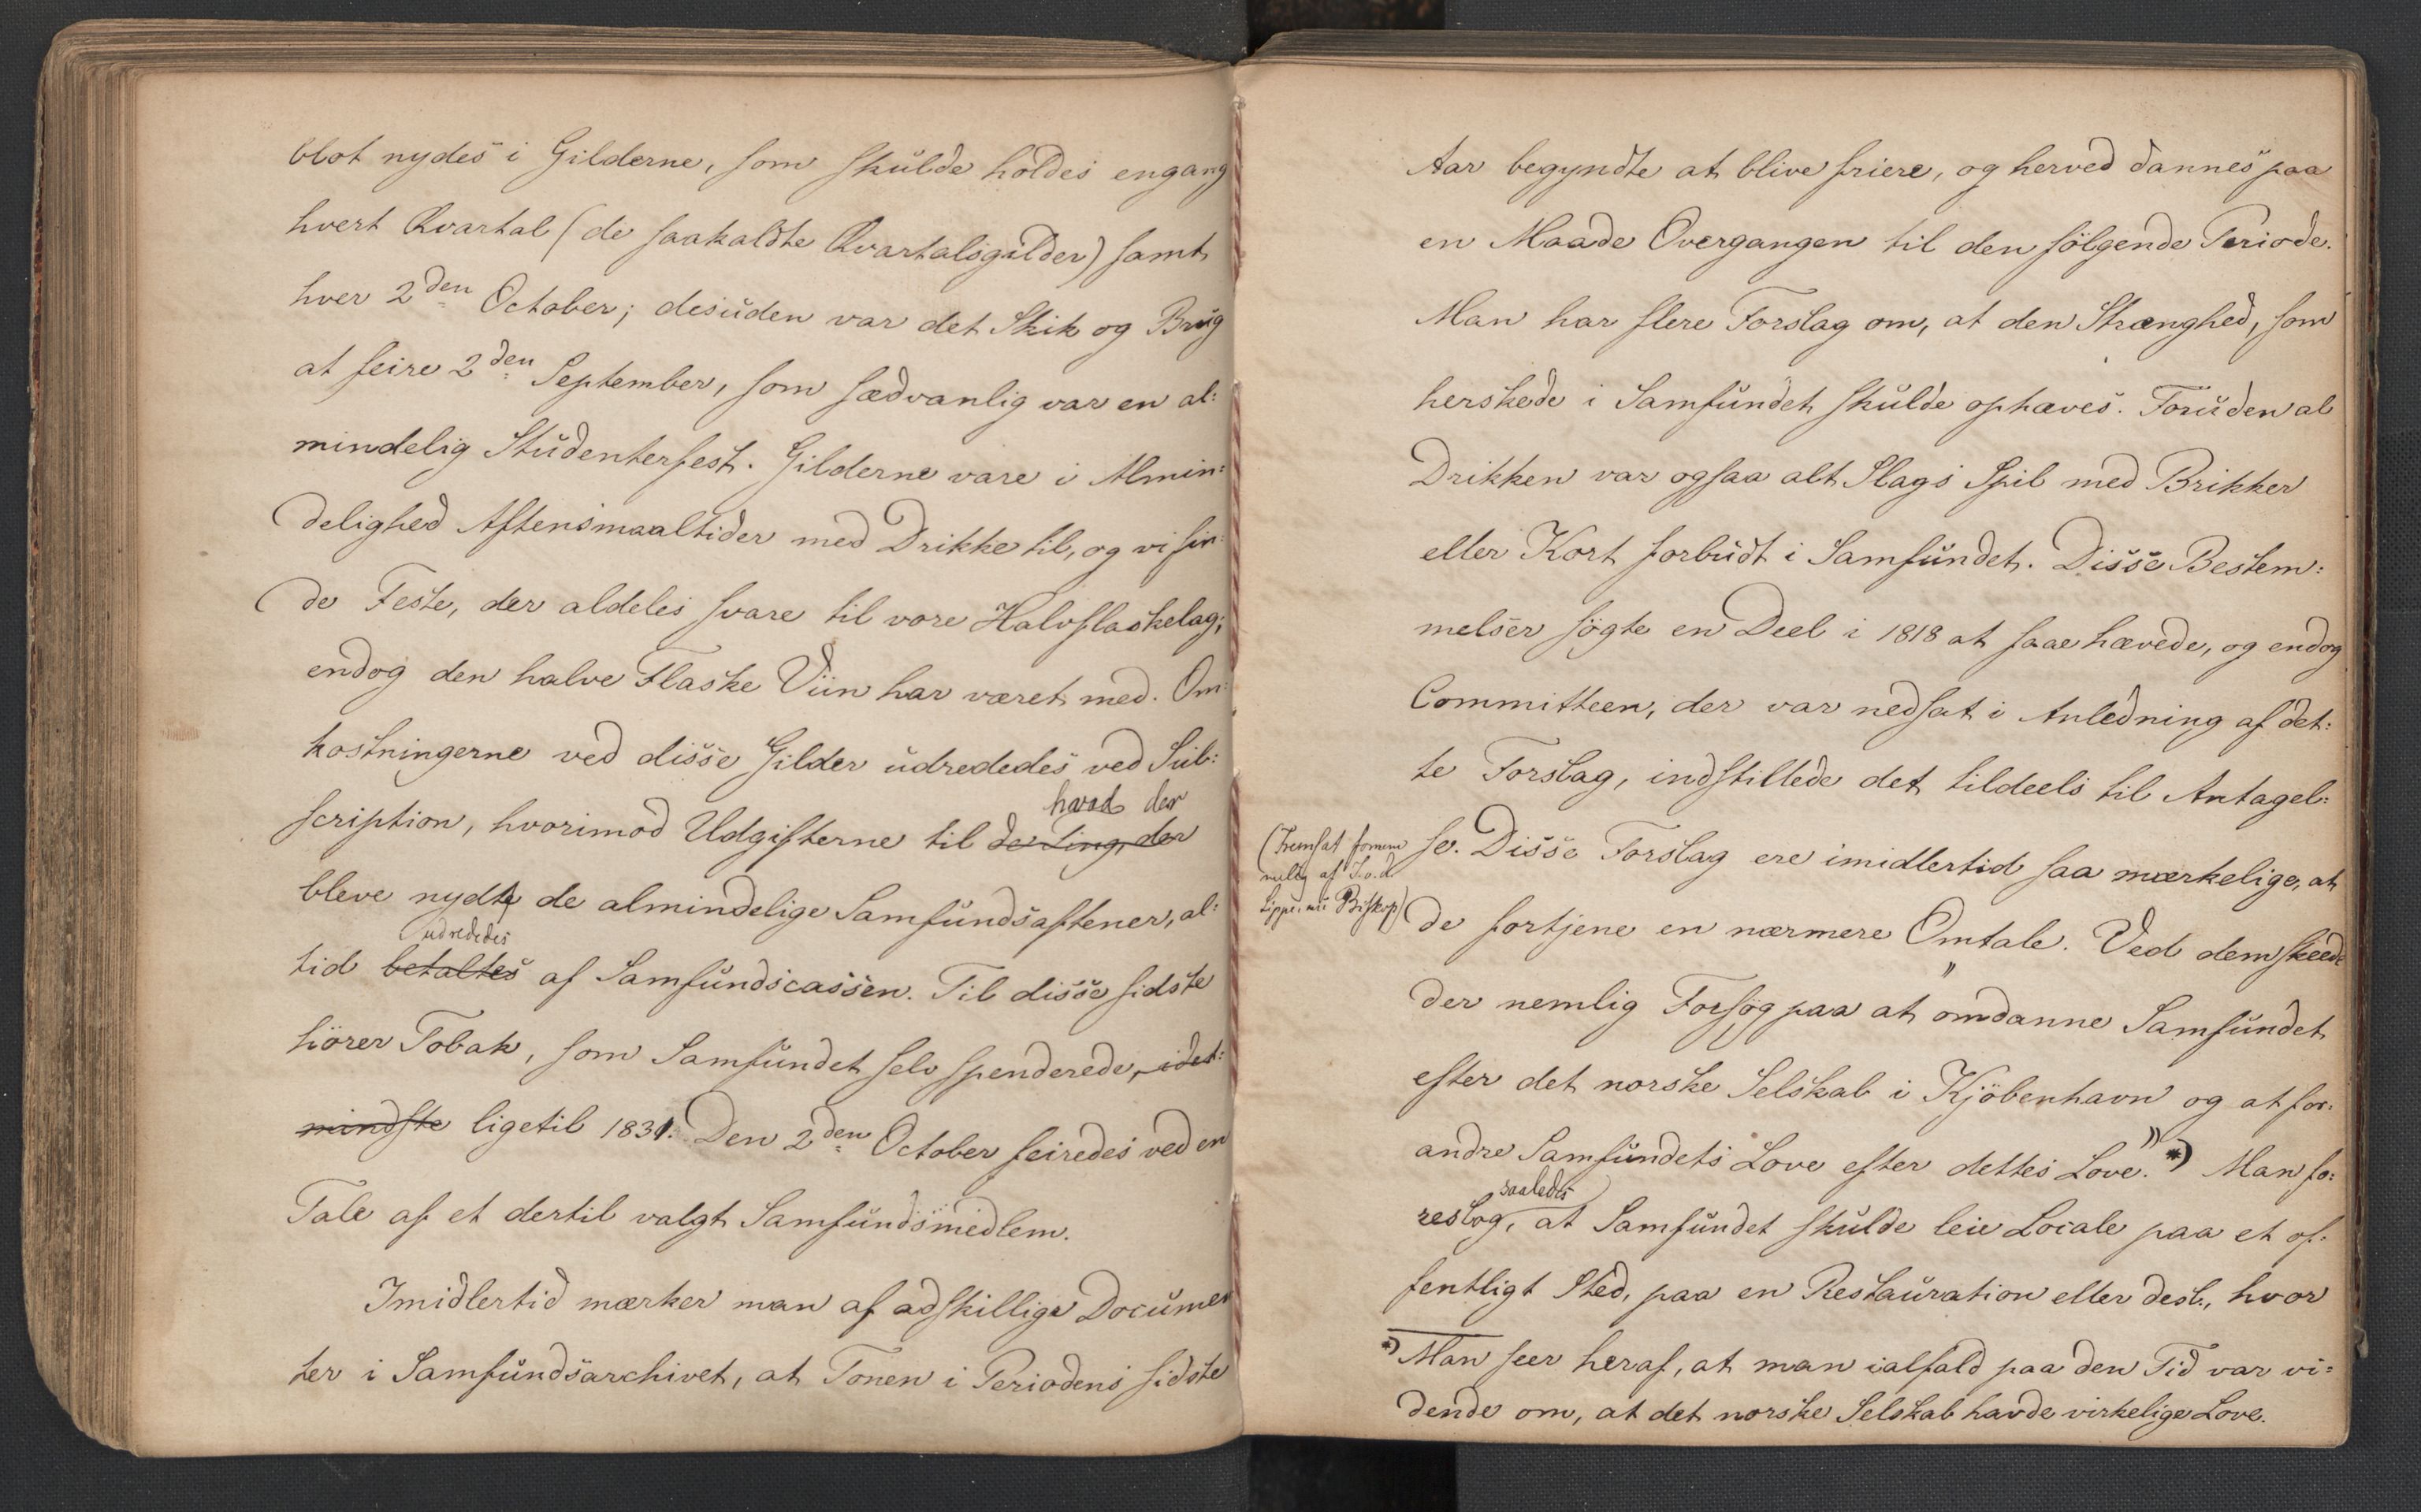 blot nydes i Gilderne, som skulde holdes engang
hvert Kvartal (de saakaldte Kvartalsgilder) samt
hver 2den October; desuden var det Skik og Brug
at feire 2den September, som sædvanlig var en al:
mindelig Studenterfest. Gilderne vare i Almin:
delighed Aftensmaaltider med Drikke til, og vi fin:
de Feste, der aldeles svare til vore Halvflaskelag;
endog den halve Flaske Viin har været med. Om:
kostningerne ved disse Gilder udrededes ved Sub:
hvad der
scription, hvorimod Udgifterne til de Ting, der
bleve nydt de almindelige Samfundsaftener, al:
udrededes
tid betaltes af Samfundscassen. Til disse sidste
hörer Tobak, som Samfundet selv spenderede, idet:
mindste ligetil 1831. Den 2den October feiredes ved en
Tale af et dertil valgt Samfundsmedlem.
Imidlertid mærker man af adskillige Documen
ter i Samfundsarchivet, at Tonen i Periodens sidste
Aar begyndte at blive friere, og herved dannes paa
en Maade Overgangen til den fölgende Periode.
Man har flere Forslag om, at den Strænghed, som
herskede i Samfundet skulde ophæves. Foruden al
Drikken var ogsaa alt Slags Spil med Brikker
eller Kort forbudt i Samfundet. Disse Bestem:
melser sögte en Deel i 1818 at faae hævede, og endog
Committeen, der var nedsat i Anledning af det:
te Forslag, indstillede det tildeels til Antagel:
se. Disse Forslag ere imidlertid saa mærkelige, at
(Fremsat fornem
melig af J. v. d.
Lippe, nu Biskop)
de fortjene en nærmere Omtale. Ved dem skeede
der nemlig Forsög paa at "omdanne Samfundet
efter det norske Selskab i Kjöbenhavn og at for:
andre Samfundets Love efter dettes Love." *) Man fo:
saaledes
reslog, at Samfundet skulde leie Locale paa et of:
fentligt Sted, paa en Restauration eller desl., hvor
*) Man seer heraf, at man ialfald paa den Tid var vi=
dende om, at det norske Selskab havde virkelige Love.